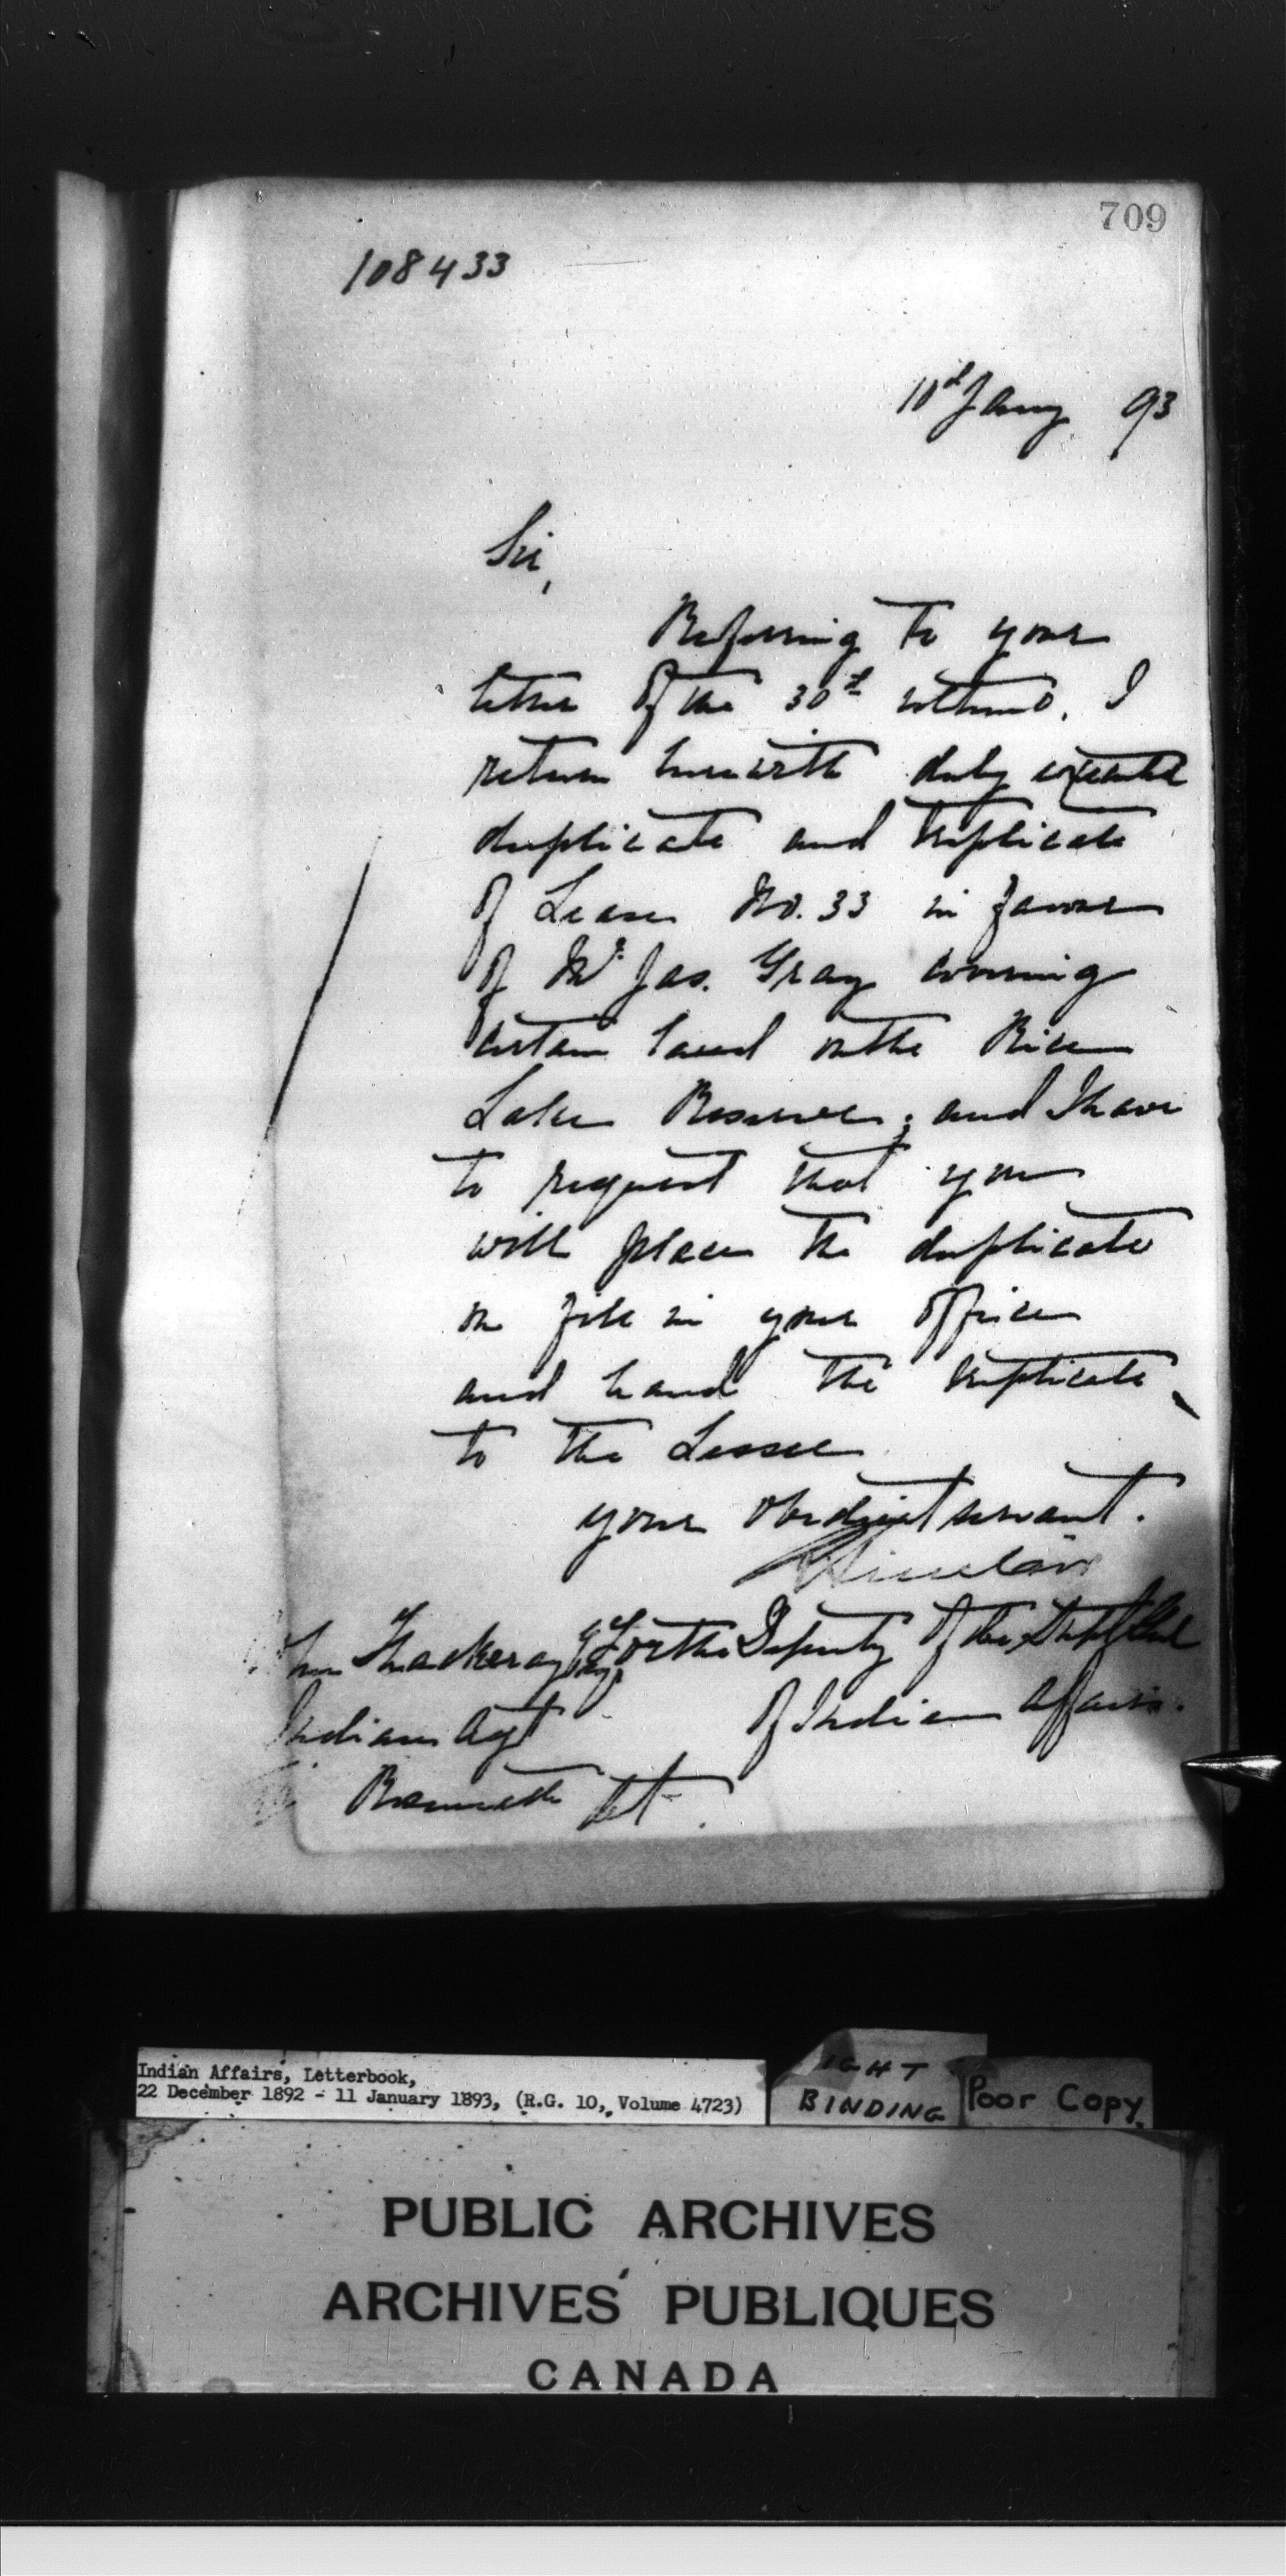 709
108433
10th Jany 93
Sir,
Referring to your
letter of the 30th ultimo, I
return herewith duly executed
duplicate and triplicate
of Lease No. 33 in favour
of Mr. Jas. Gray covering
certain land on the Rice
Lake Reserve; and I have
to request that you
will place the duplicate
on file in your office
and hand the triplicate
to the Lessee
your obedient servant.
Sinclair
Thackeray Esq. For the Deputy of the Supt Genl
Indian Agt of Indian Affairs.
Roseneath Ont.
Indian Affairs, Letterbook,
22 December 1892 - 11 January 1893, (R.G. 10, Volume 4723)
IGHT
BINDING
Poor Copy
PUBLIC ARCHIVES
ARCHIVES PUBLIQUES
CANADA